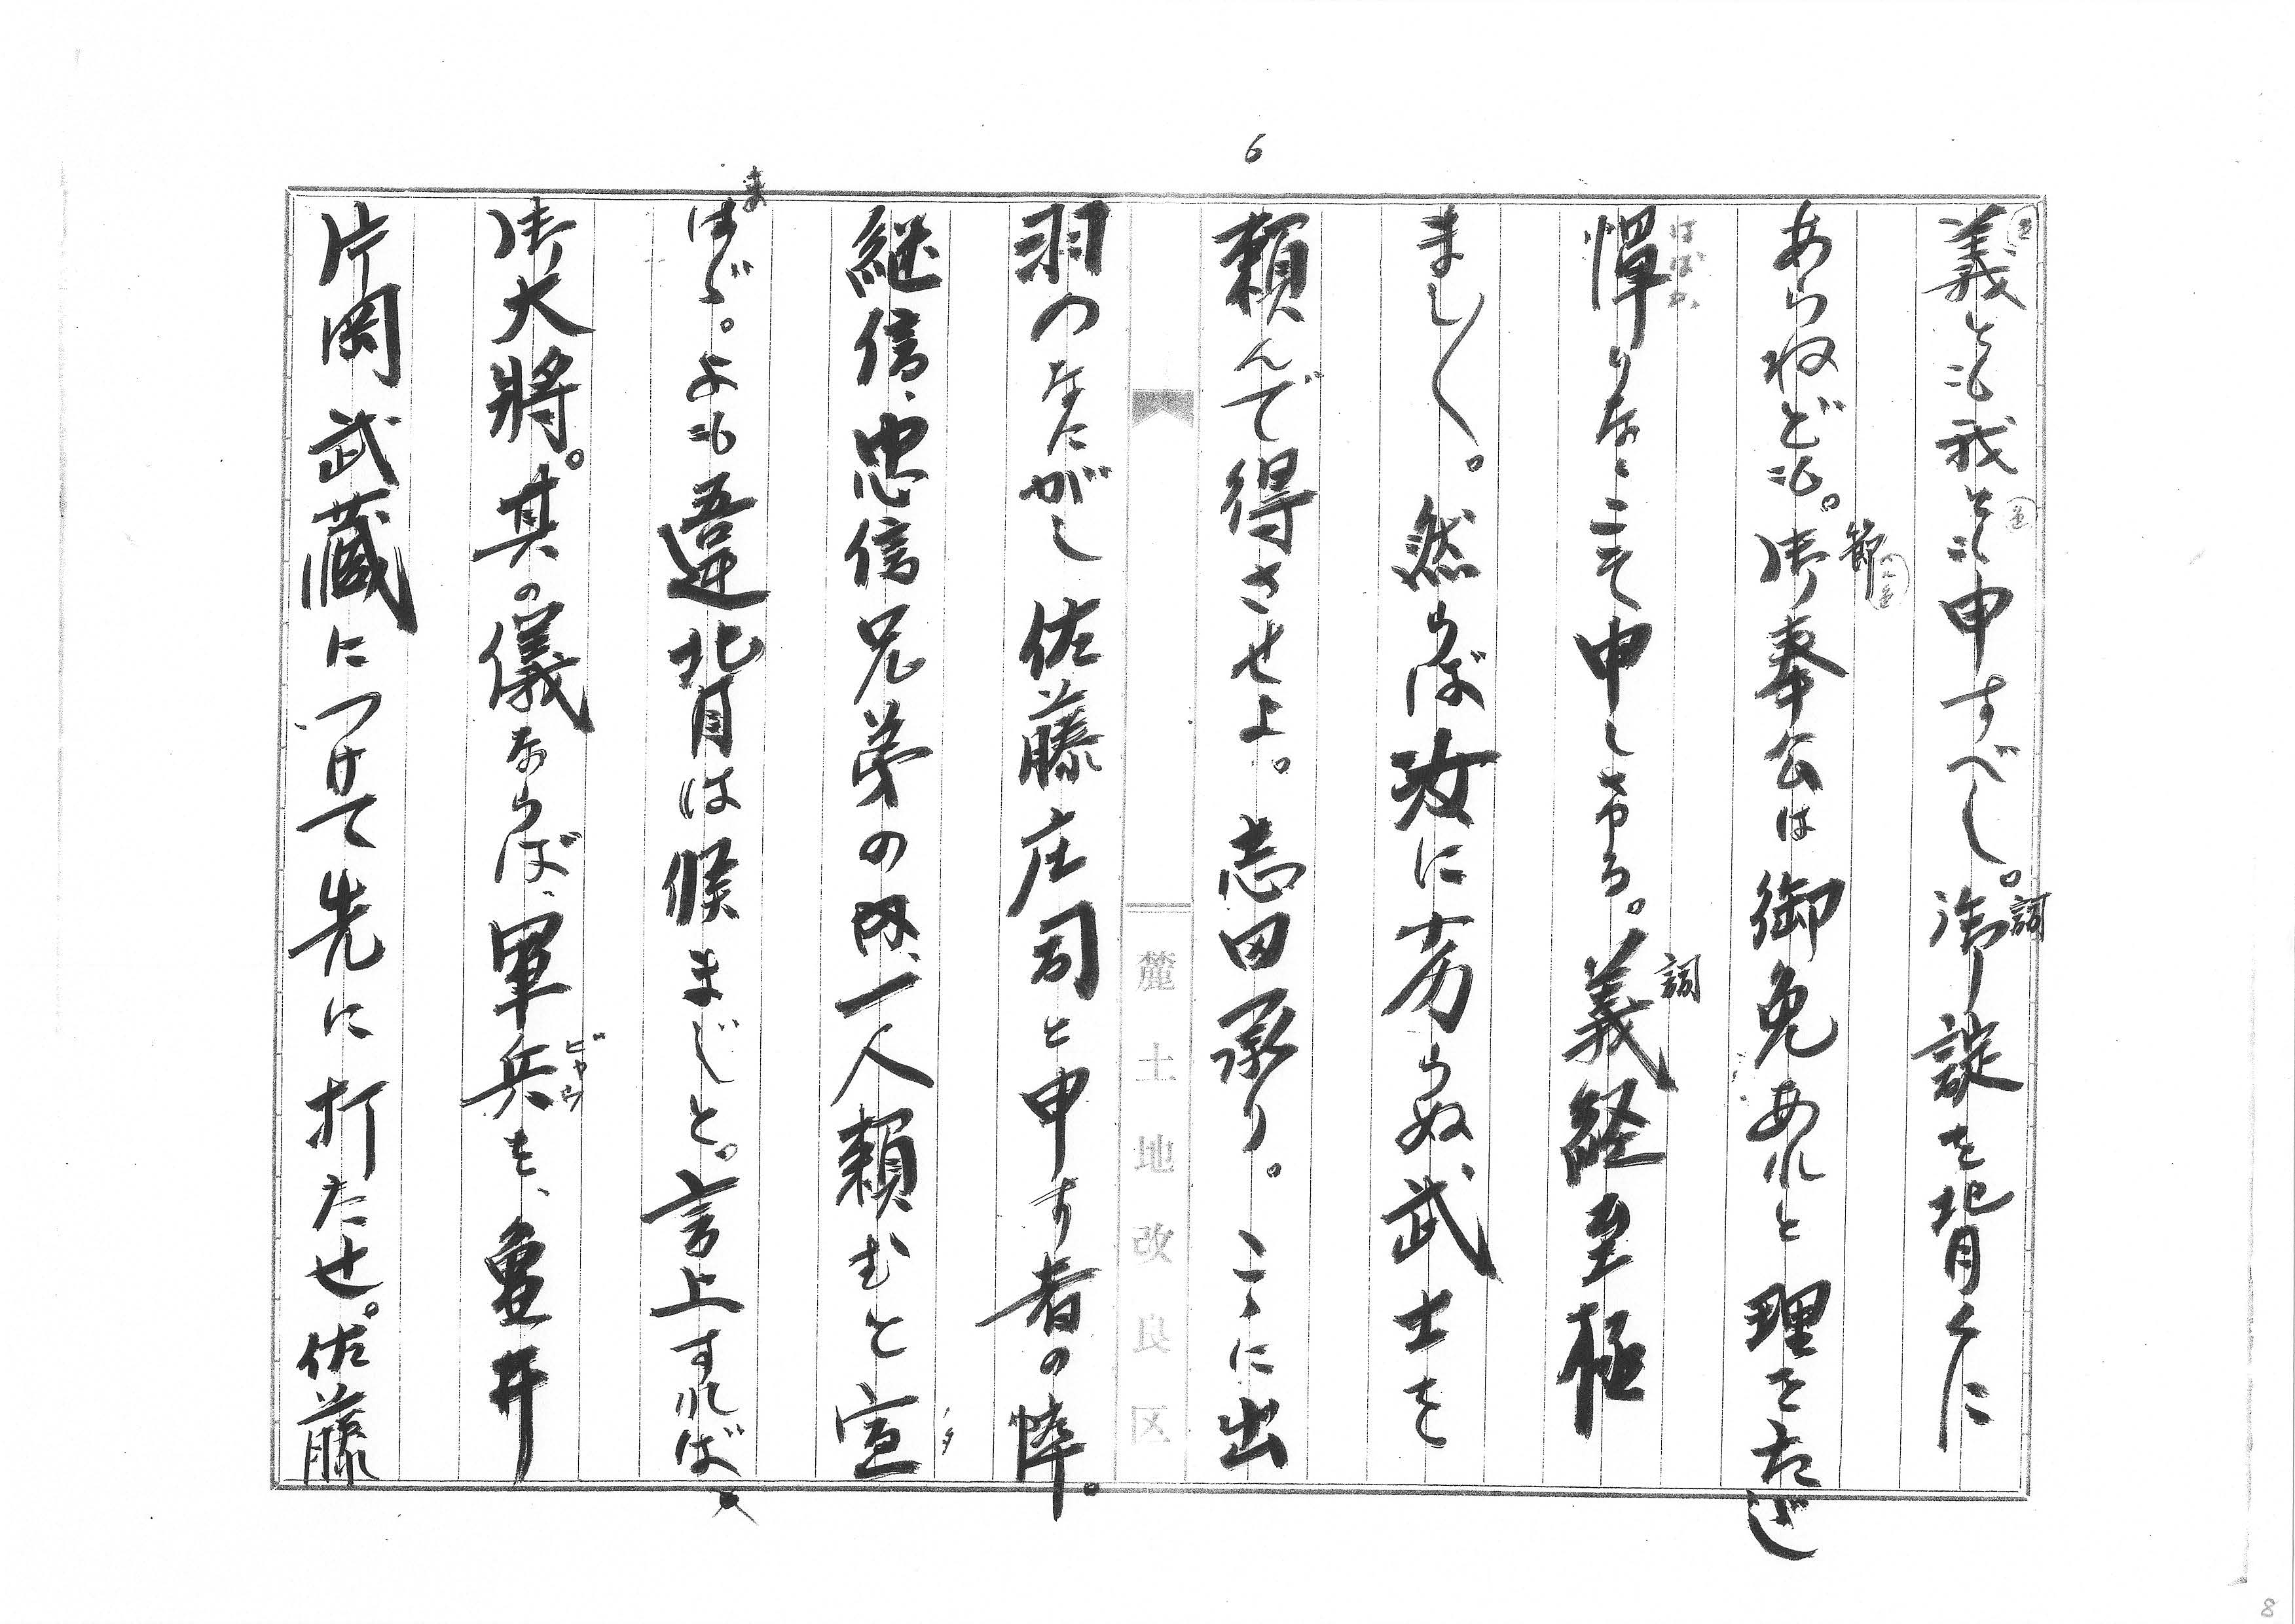 6
義とも我とも申すべし。御諚を背くに
詞
あらねども。御奉公は御免あれと理をただ
節
し
憚りなくこそ申しさゐる。義経至極
はばか
詞
まし〱。然らば汝に劣らぬ武士を
頼んで得させよ。志田承り。こゝに出
麓土地改良区
羽のなにがし佐藤庄司と申す者の悴。
継信、忠信兄弟の内、一人頼むと宣
はゞ。よも違背は候まじと。言上すれば
ま
御大將。其の儀ならば、軍兵を、亀井
ビヤウ
片岡武蔵につけて先に打たせ。佐藤
8